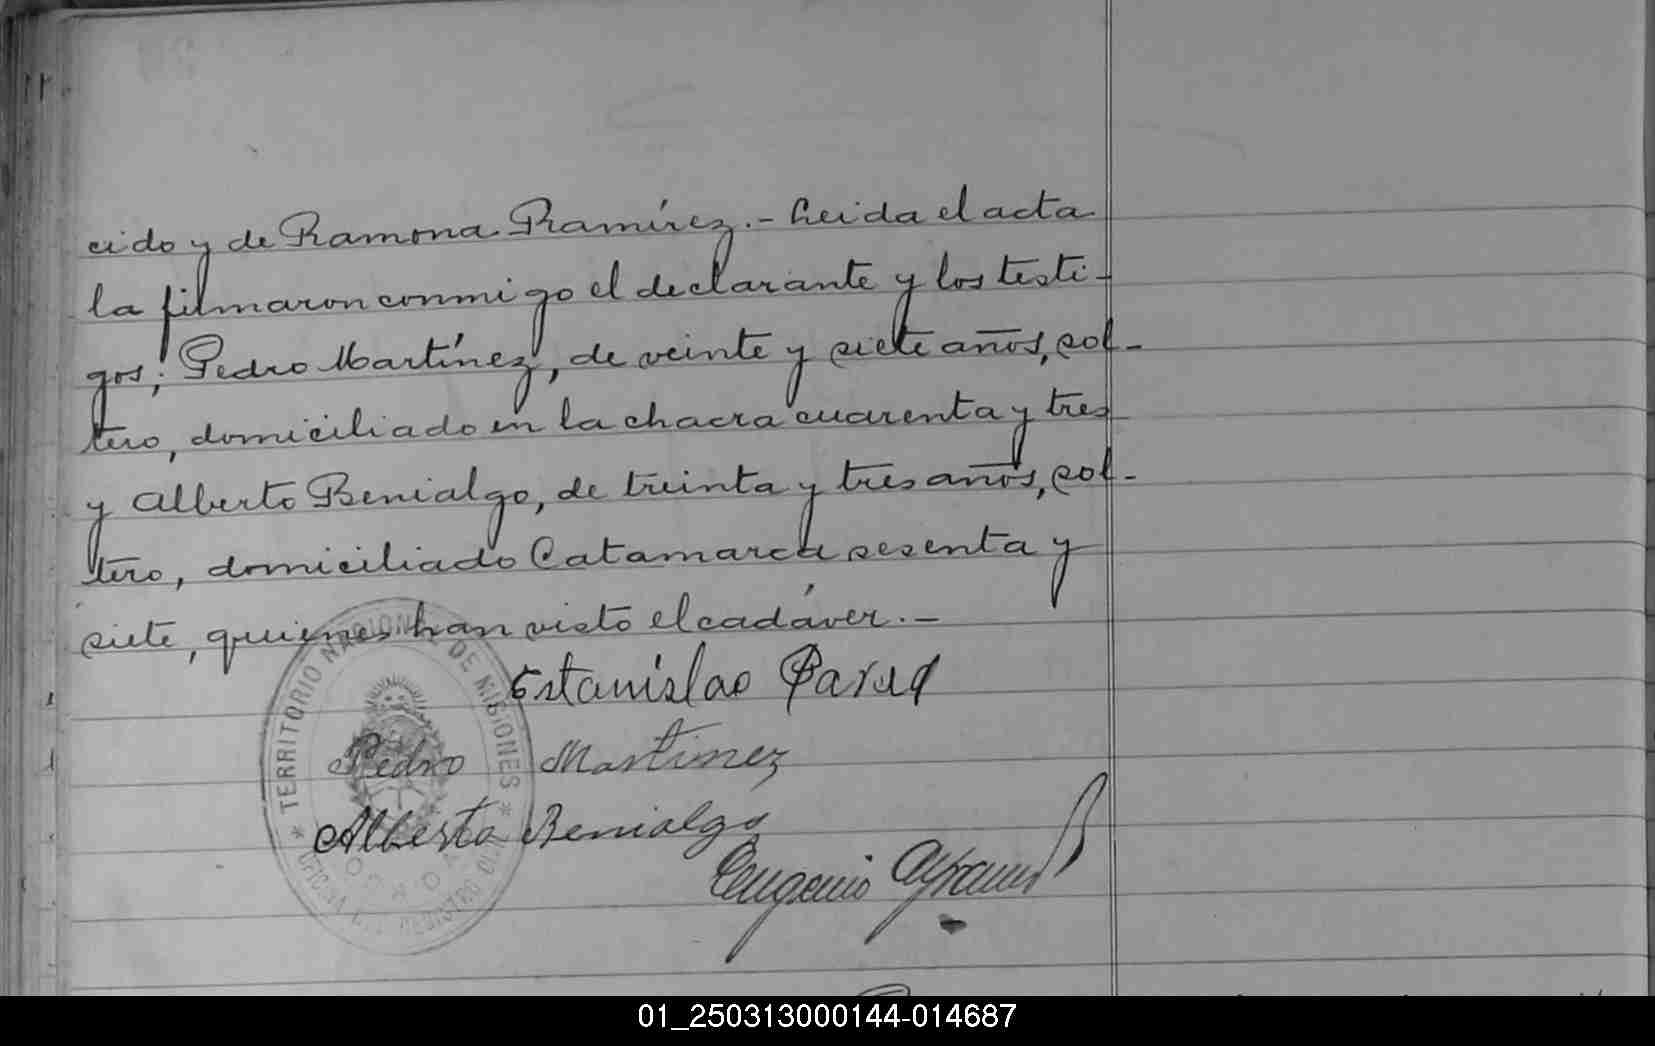 cido y de Ramona Ramírez.- Leida el acta
la firmaron conmigo el declarante y los testi-
gos; Pedro Martínez, de veinte y siete años, sol-
tero, domiciliado en la chacra cuarenta y tres
y Alberto Benialgo, de treinta y tres años, sol-
tero, domiciliado Catamarca sesenta y
siete, quienes han visto el cadáver.-
Estanislao
Pedro Martinez
Alberto Benialgo
Eugenio
* TERRITORIO NACIONAL DE MISIONES *
OFICINA DEL REGISTRO CIVIL
01_250313000144-014687